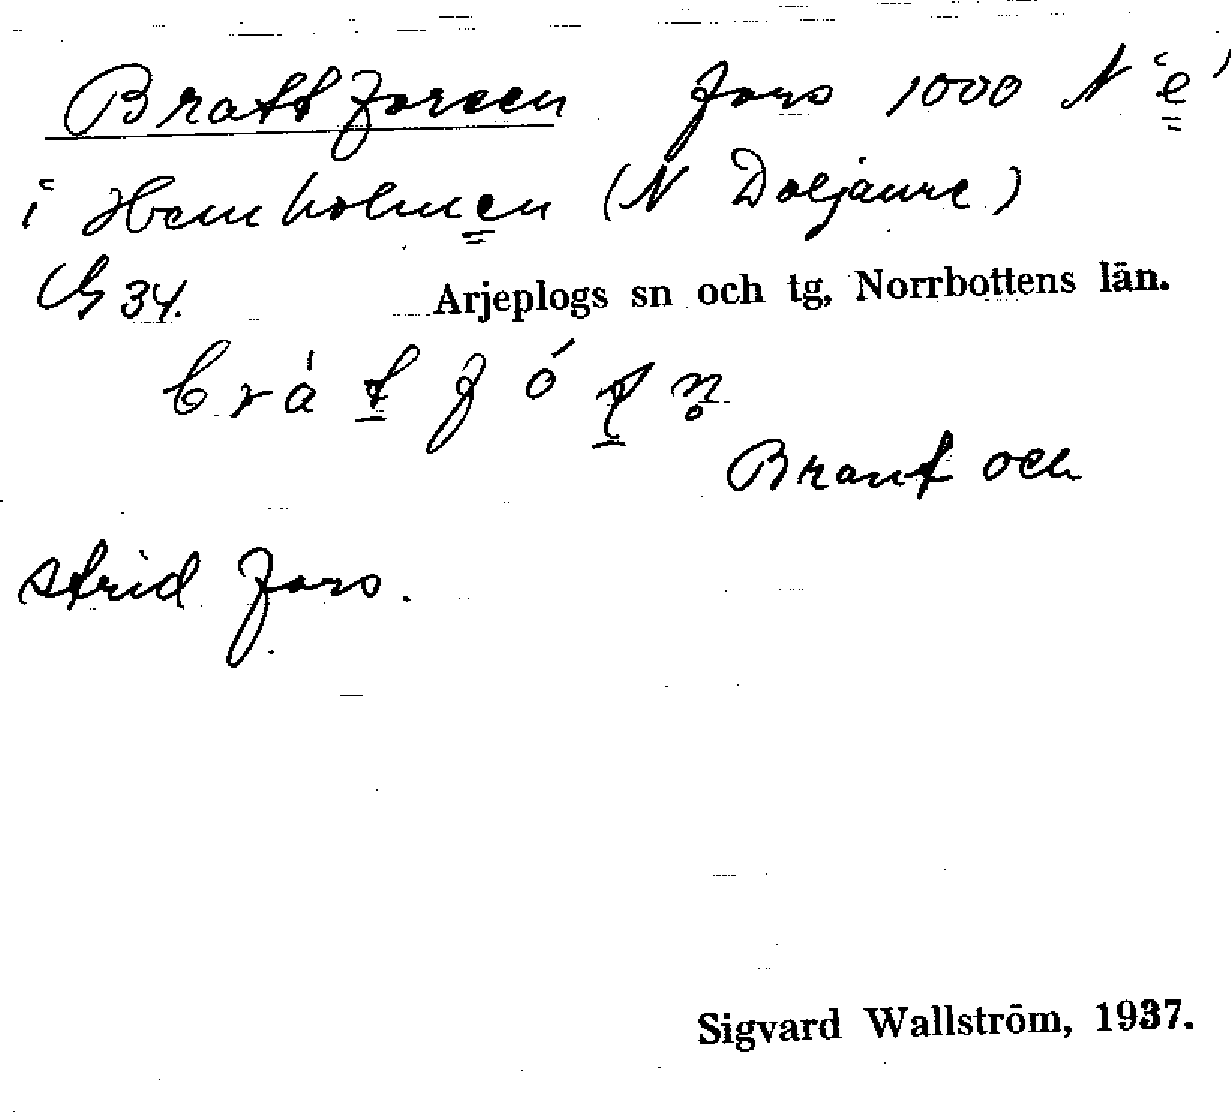 Brattforsen fors 1000 N 'e'
i Hemholmen (N Doljaure)
G 34. Arjeplogs sn och tg, Norrbottens län.
Brant och
strid fors.
Sigvard Wallström, 1937.